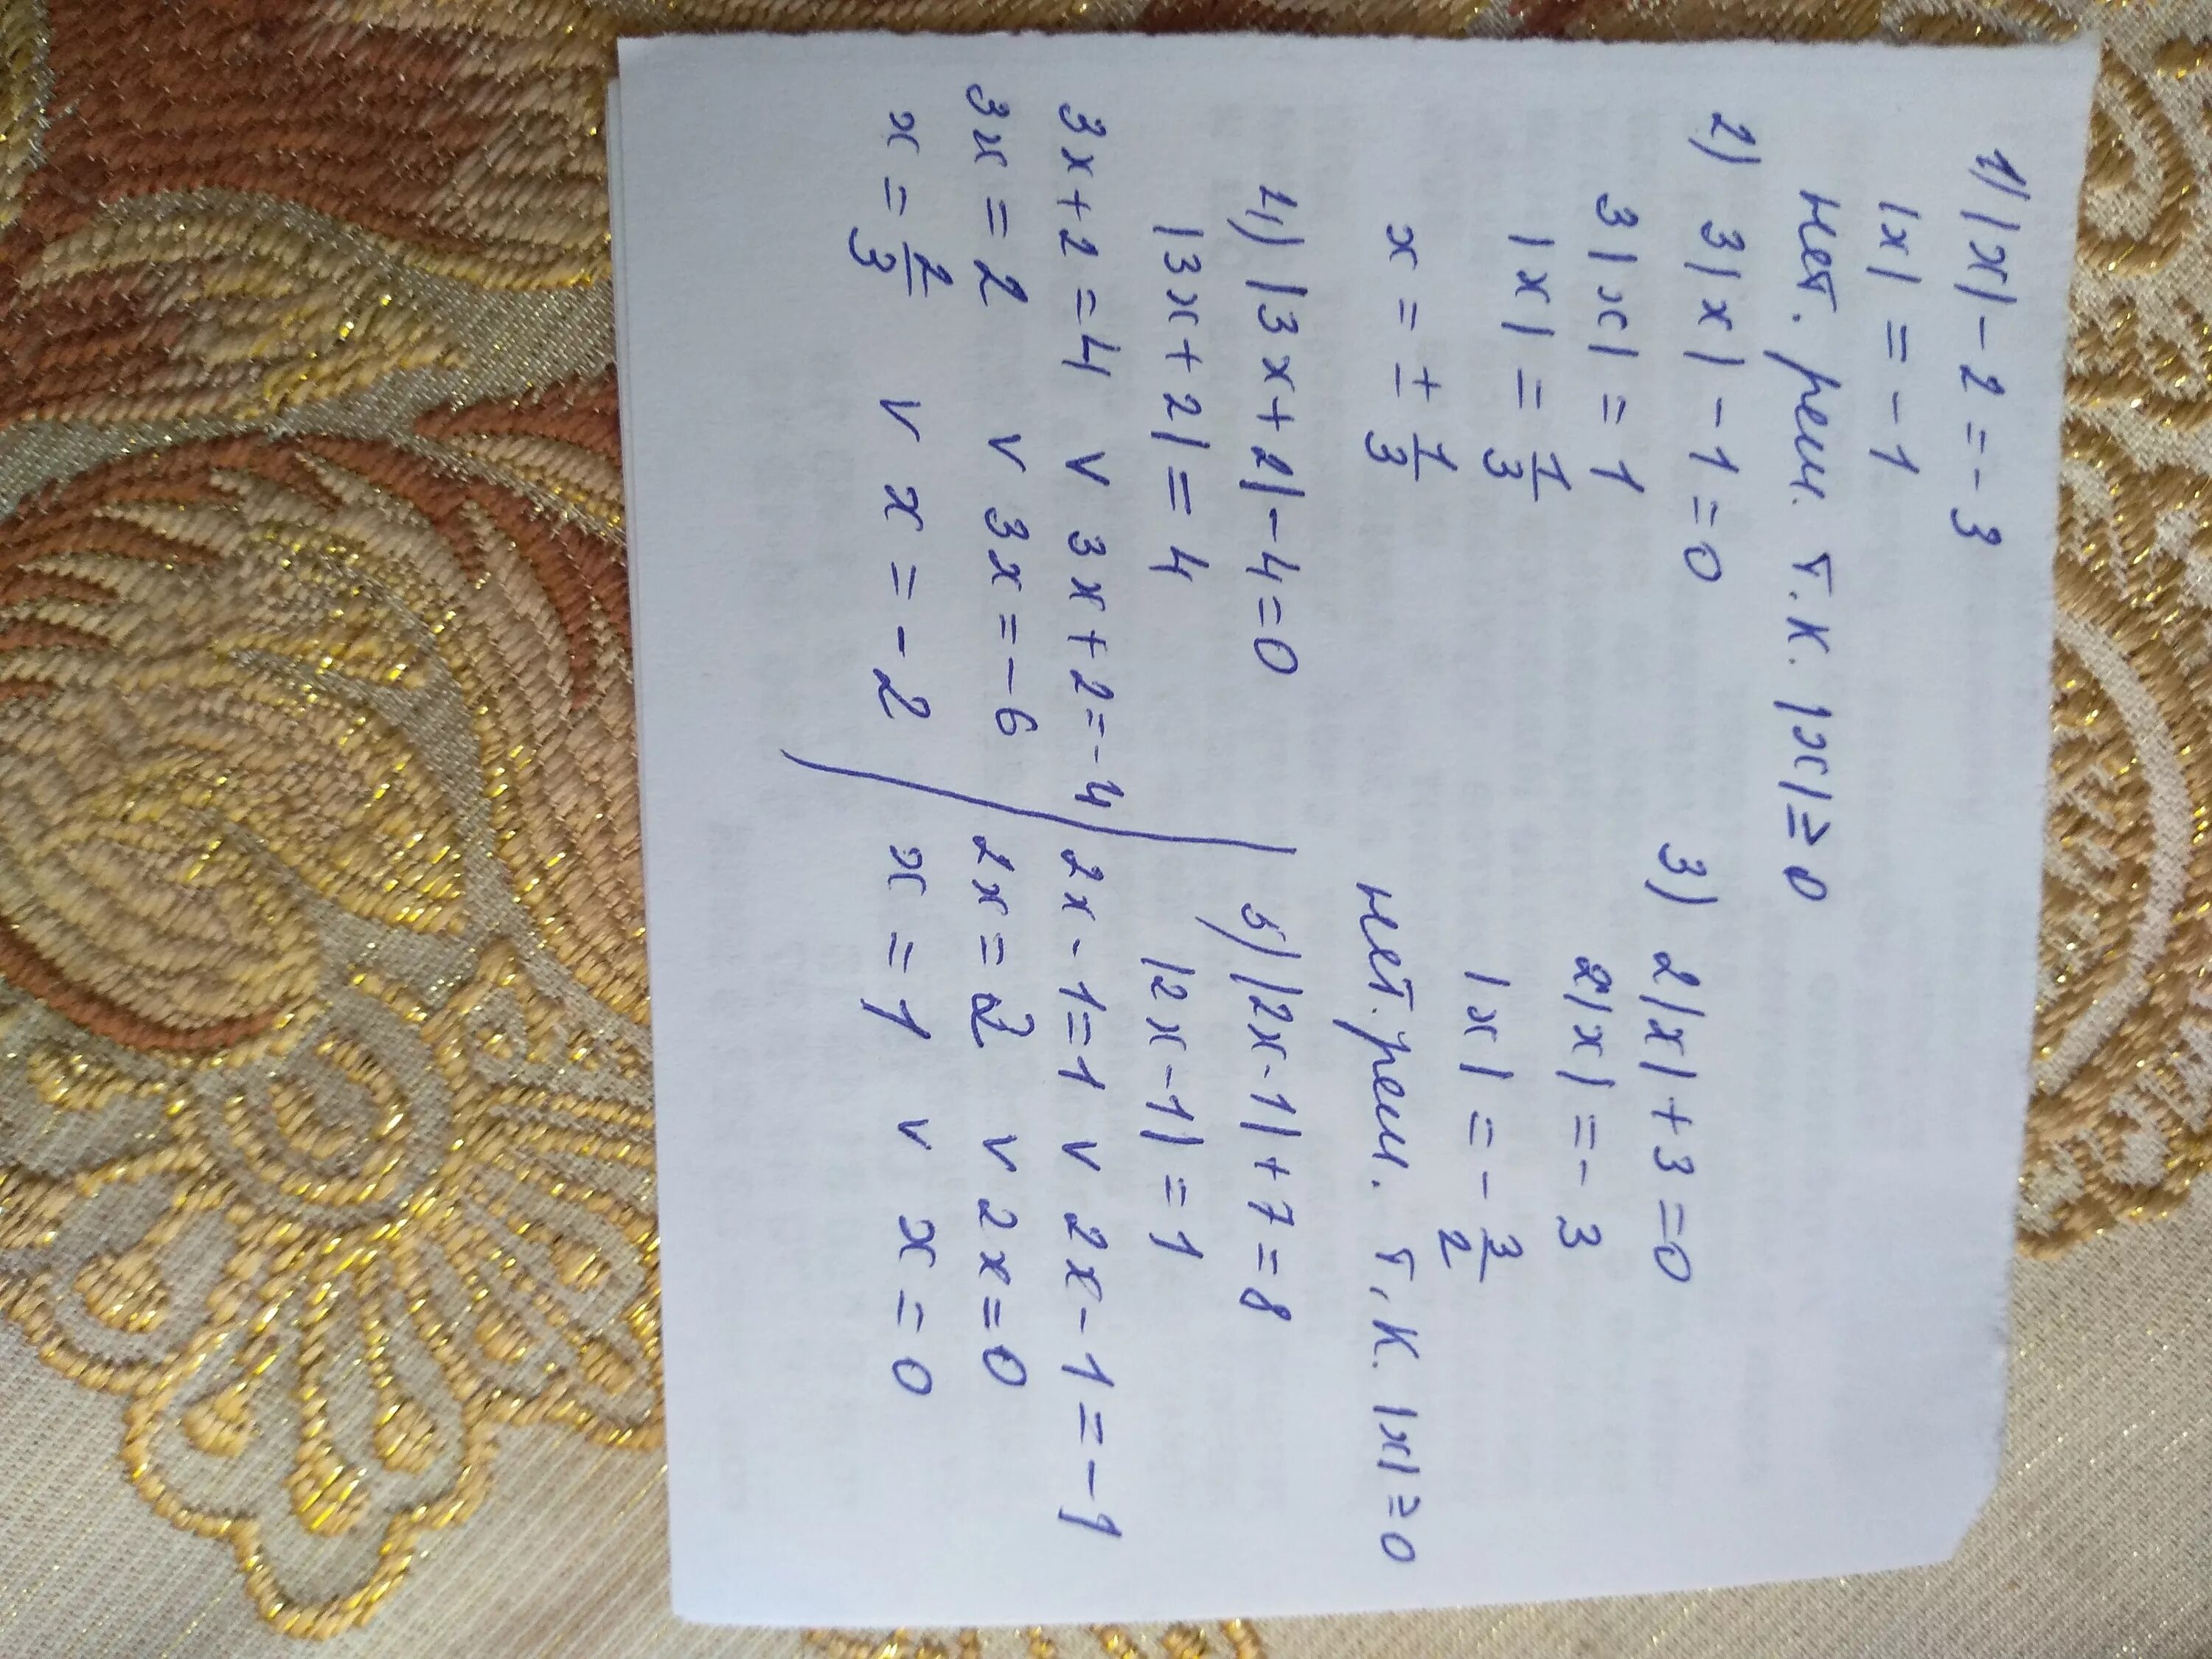 1) |x| - 2 = - 3
|x| = - 1
нет. реш. т. к. |x| ≥ 0
2) 3|x| - 1 = 0
3|x| = 1
|x| = 1/3
x = ± 1/3
3) 2|x| + 3 = 0
2|x| = - 3
|x| = - 3/2
нет. реш. т. к. |x| ≥ 0
4) |3x + 2| - 4 = 0
|3x + 2| = 4
3x + 2 = 4 v 3x + 2 = - 4
3x = 2 v 3x = - 6
x = 2/3 v x = - 2
5) |2x - 1| + 7 = 8
|2x - 1| = 1
2x - 1 = 1 v 2x - 1 = - 1
2x = 2 v 2x = 0
x = 1 v x = 0